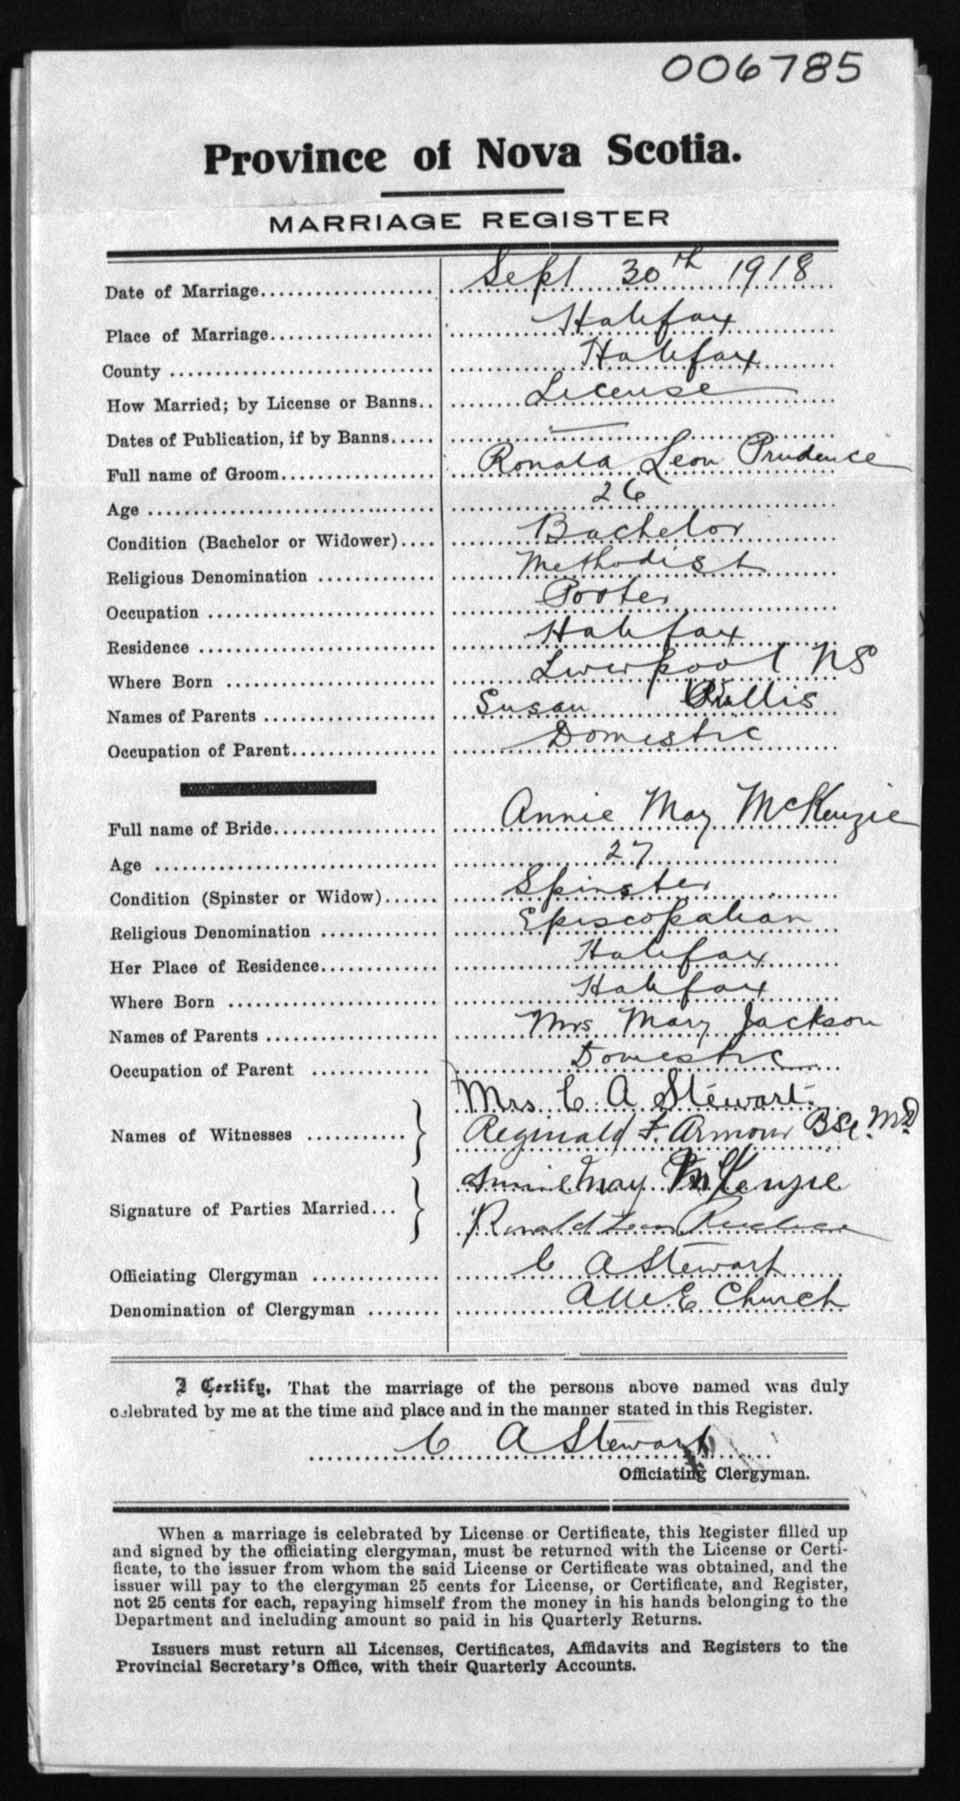 006785
Province of Nova Scotia.
MARRIAGE REGISTER
Date of Marriage.................... Sept 30th 1918
Place of Marriage................... Halifax
County .............................. Halifax
How Married; by License or Banns.. License
Dates of Publication, if by Banns..... —
Full name of Groom.................. Ronald Leon Prudence
Age ................................. 26
Condition (Bachelor or Widower).... Bachelor
Religious Denomination ............. Methodist
Occupation .......................... Porter
Residence ........................... Halifax
Where Born ........................ Liverpool NS
Names of Parents .................... Susan
Occupation of Parent................ Domestic
Full name of Bride................... Annie May McKenzie
Age ................................. 27
Condition (Spinster or Widow)...... Spinster
Religious Denomination ............. Episcopalian
Her Place of Residence............. Halifax
Where Born ........................ Halifax
Names of Parents .................... Mrs Mary Jackson
Occupation of Parent .............. Domestic
Mrs C A Stewart.
Names of Witnesses ........... } Reginald F. Armour BSc. MD
Annie May McKenzie
Signature of Parties Married... } Ronald Leon Prudence
Officiating Clergyman .............. C A Stewart
Denomination of Clergyman ........ AME Church
I Certify, That the marriage of the persons above named was duly
celebrated by me at the time and place and in the manner stated in this Register.
C A Stewart
Officiating Clergyman.
When a marriage is celebrated by License or Certificate, this Register filled up
and signed by the officiating clergyman, must be returned with the License or Certi-
ficate, to the issuer from whom the said License or Certificate was obtained, and the
issuer will pay to the clergyman 25 cents for License, or Certificate, and Register,
not 25 cents for each, repaying himself from the money in his hands belonging to the
Department and including amount so paid in his Quarterly Returns.
Issuers must return all Licenses, Certificates, Affidavits and Registers to the
Provincial Secretary's Office, with their Quarterly Accounts.